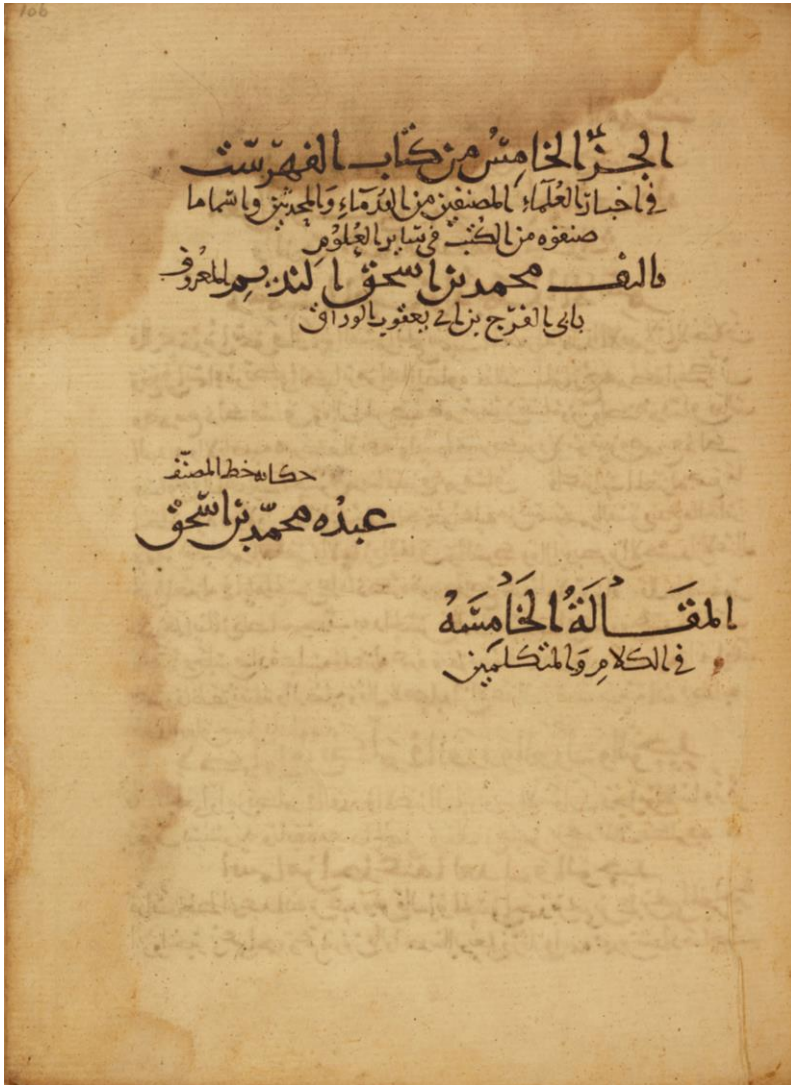 106
الجزء الخامس من كتاب الفهرست
في اخبار العلماء المصنفين من القدماء والمحدثين واسماء ما
صنفوه من الكتب في سائر العلوم
تاليف محمد بن اسحق النديم المعروف
بابي الفرج بن ابي يعقوب الوراق
حكاية خط المصنف
عبده محمد بن اسحق
المقالة الخامسة
في الكلام والمتكلمين